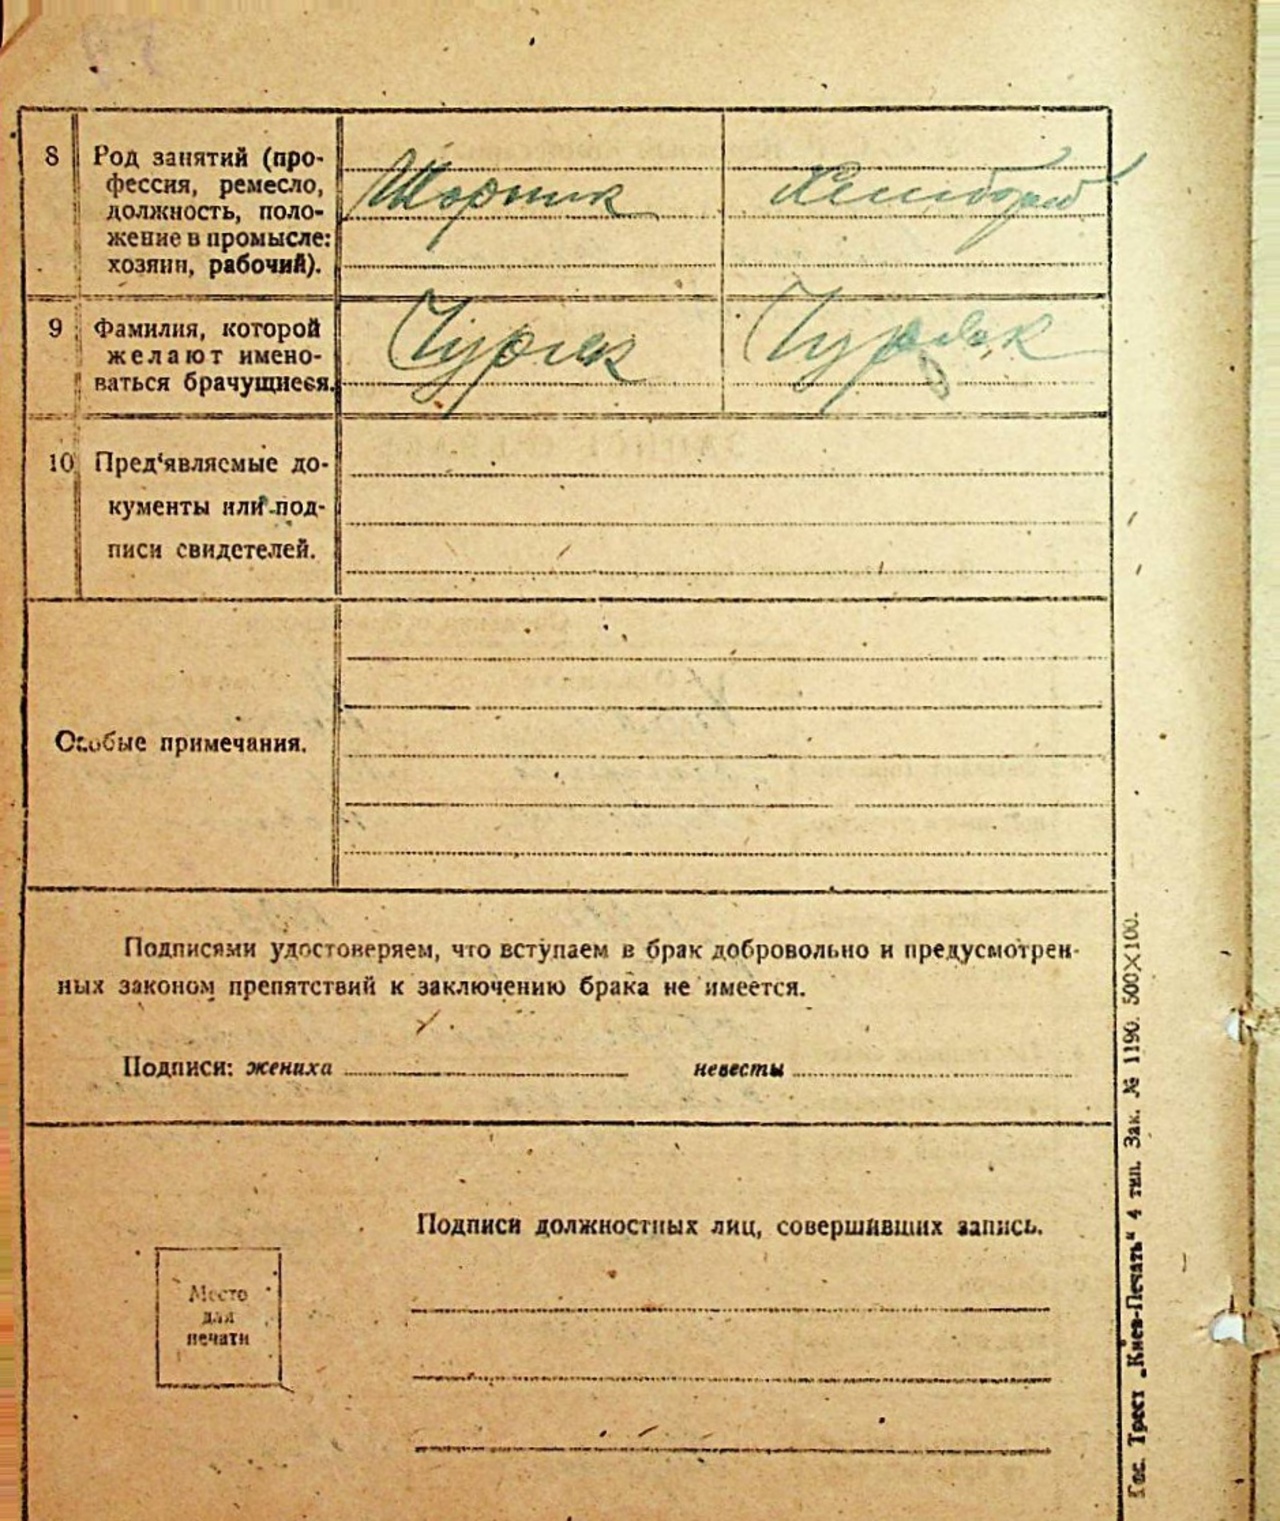 8 Род занятий (про-
фессия, ремесло,
должность, поло-
жение в промысле:
хозяин, рабочий).
Шорник
9 Фамилия, которой
желают имено-
ваться брачущиеся.
10 Пред‘являемые до-
кументы или под-
писи свидетелей.
Особые примечания.
Подписями удостоверяем, что вступаем в брак добровольно и предусмотрен-
ных законом препятствий к заключению брака не имеется.
Подписи: жениха невесты
Подписи должностных лиц, совершивших запись.
Место
для
печати
Гос. Трест „Киев-Печать“ 4 тип. Зак. № 1190. 500×100.